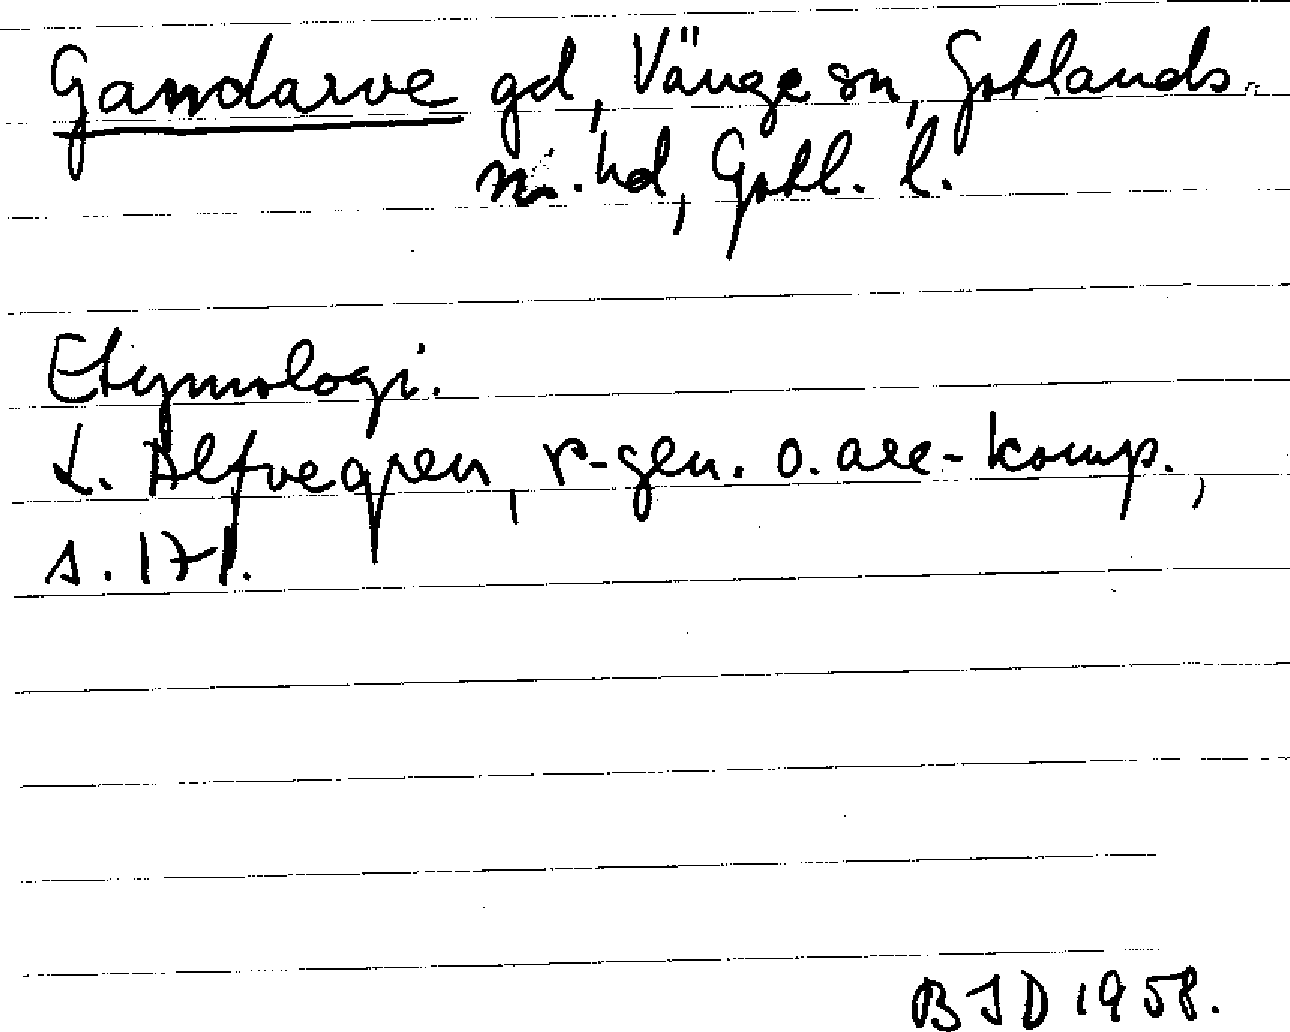 Gandarve gd, Vänge sn, Gotlands
n. hd, Gotl. l.
Etymologi.
L. Alfvegren, r-gen. o. are-komp.,
s. 171.
BJD 1958.